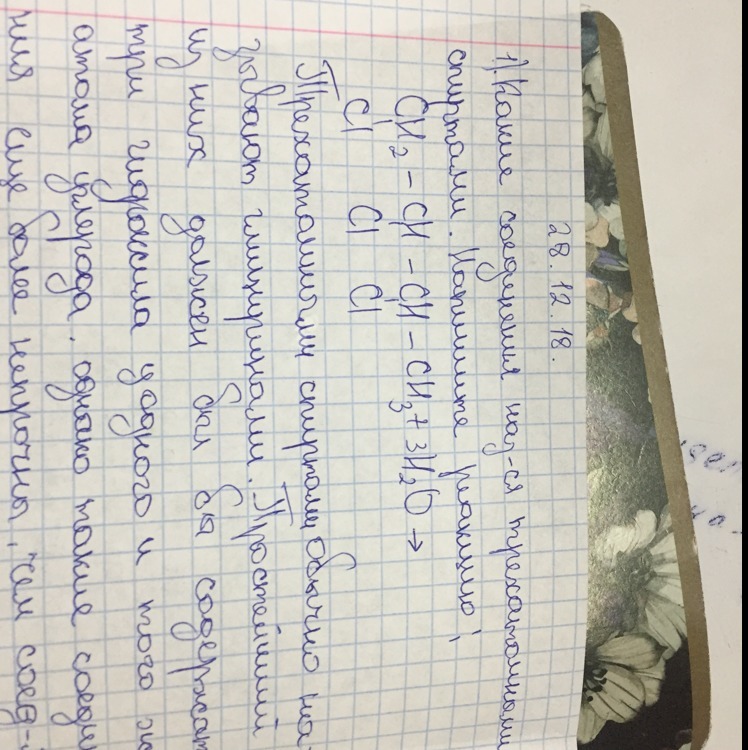 28.12.18.
1). Какие соединения наз-ся трехатомными
спиртами. Напишите реакцию;
CH2 – CH – CH – CH3 + 3H2O →
Cl Cl Cl
Трехатомными спиртами обычно на-
зывают глицеринами. Простейший
из них должен был бы содержат
три гидроксила у одного и того ж
атома углерода. однако такие соеди
ния еще более непрочны, чем соед-